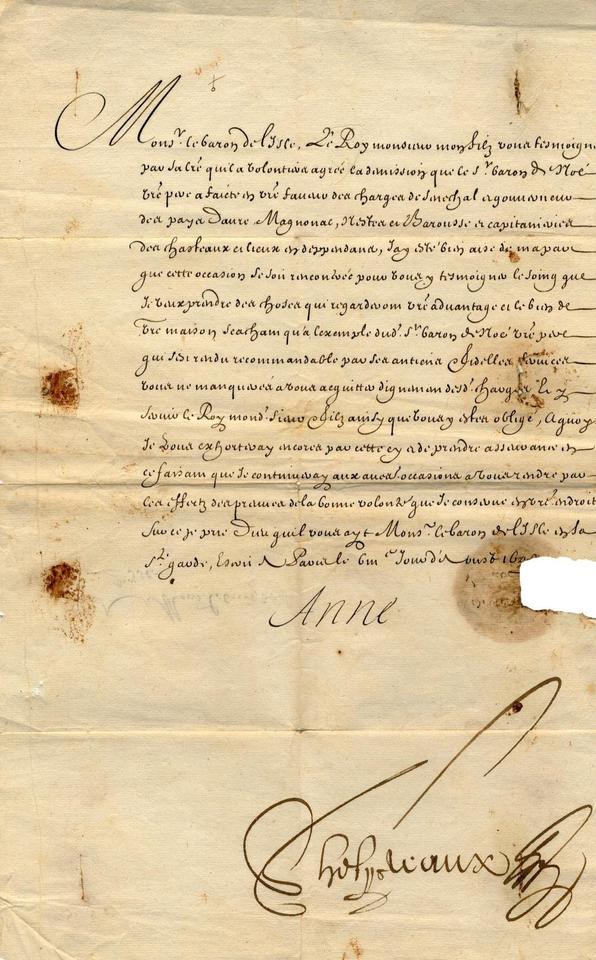 Mons.r le baron de l'Isle, Le Roy monsieur mon filz vous tesmoigne
par sa lre qu'il a volontiers agréé la demission que le s.r baron de Noé
vre pere a faicte en vre faveur des charges de senechal et gouverneur
des pays Daure Magnonac, Nestes et Barousse et capitaineries
des chasteaux et lieux en deppendans, J'ay esté bien aise de ma part
que cette occasion se soit rencontrée pour vous y tesmoigner le soing que
Je veux prendre des choses qui regarderont vre advantage et le bien de
vre maison Seacham qu'a l'exemple dud. s.r baron de Noé vre pere
qui s'est rendu recommandable par ses antiens fidelles services
vous ne manquerez a vous acquitter dignement desd. charges
servir le Roy mond. sieur filz ainsy que vous y estes obligé, A quoy
Je vous exhorteray encores par cette cy et de prendre asseurance en
ce faisant que Je continueray aux autres occasions a vous rendre par
les effectz des preuves de la bonne volonté que Je conserve en vre endroit
Sur ce je prie Dieu qu'il vous ayt Mons.r le baron de l'Isle en sa
s.te garde, Escrit a Paris le
Anne